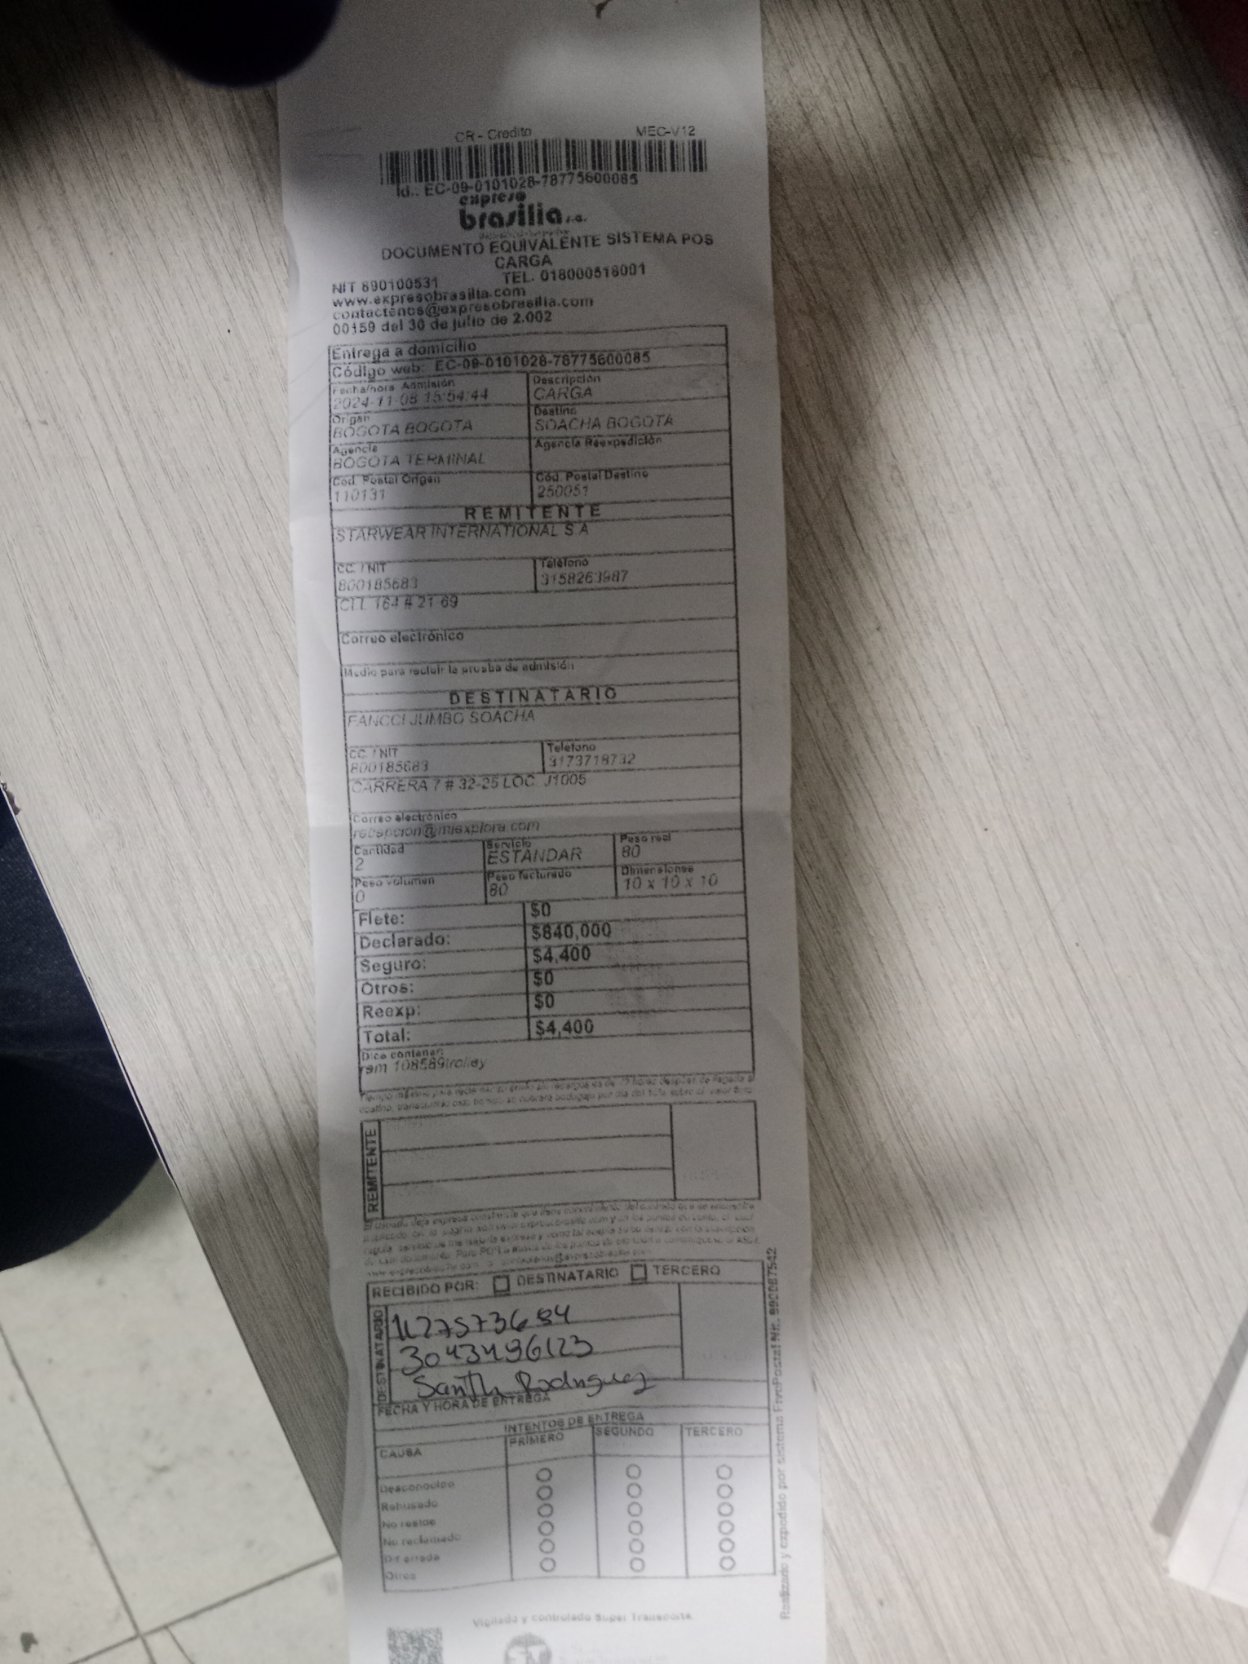 CR - Credito MEC-V12
Id.: EC-09-0101028-78775600085
expreso
brasilia s.a.
DOCUMENTO EQUIVALENTE SISTEMA POS
CARGA
NIT 890100531 TEL. 018000518001
www.expresobrasilia.com
contactenos@expresobrasilia.com
00159 del 30 de julio de 2.002
Entrega a domicilio
Código web: EC-09-0101028-78775600085
Fecha/hora Admisión Descripción
2024-11-08 15:54:44 CARGA
Origen Destino
BOGOTA BOGOTA SOACHA BOGOTA
Agencia Agencia Reexpedición
BOGOTA TERMINAL
Cód. Postal Origen Cód. Postal Destino
110131 250051
REMITENTE
STARWEAR INTERNATIONAL S A
CC / NIT Teléfono
800185683 3158263987
CLL 164 # 21 69
Correo electrónico
Medio para recibir la prueba de admisión
DESTINATARIO
FANCCI JUMBO SOACHA
CC / NIT Teléfono
800185683 3173718732
CARRERA 7 # 32-25 LOC J1005
Correo electrónico
recepcion@miexplora.com
Cantidad Servicio Peso real
2 ESTANDAR 80
Peso volumen Peso facturado Dimensiones
0 80 10 x 10 x 10
Flete: $0
Declarado: $840,000
Seguro: $4,400
Otros: $0
Reexp: $0
Total: $4,400
Dice contener:
rem 108589trolley
REMITENTE
RECIBIDO POR: DESTINATARIO TERCERO
DESTINATARIO
3043496123
Rodriguez
FECHA Y HORA DE ENTREGA
INTENTOS DE ENTREGA
CAUSA PRIMERO SEGUNDO TERCERO
Desconocido
Rehusado
No reside
No reclamado
Dir errada
Otros
Realizado y expedido por sistema
Vigilado y controlado Super Transporte